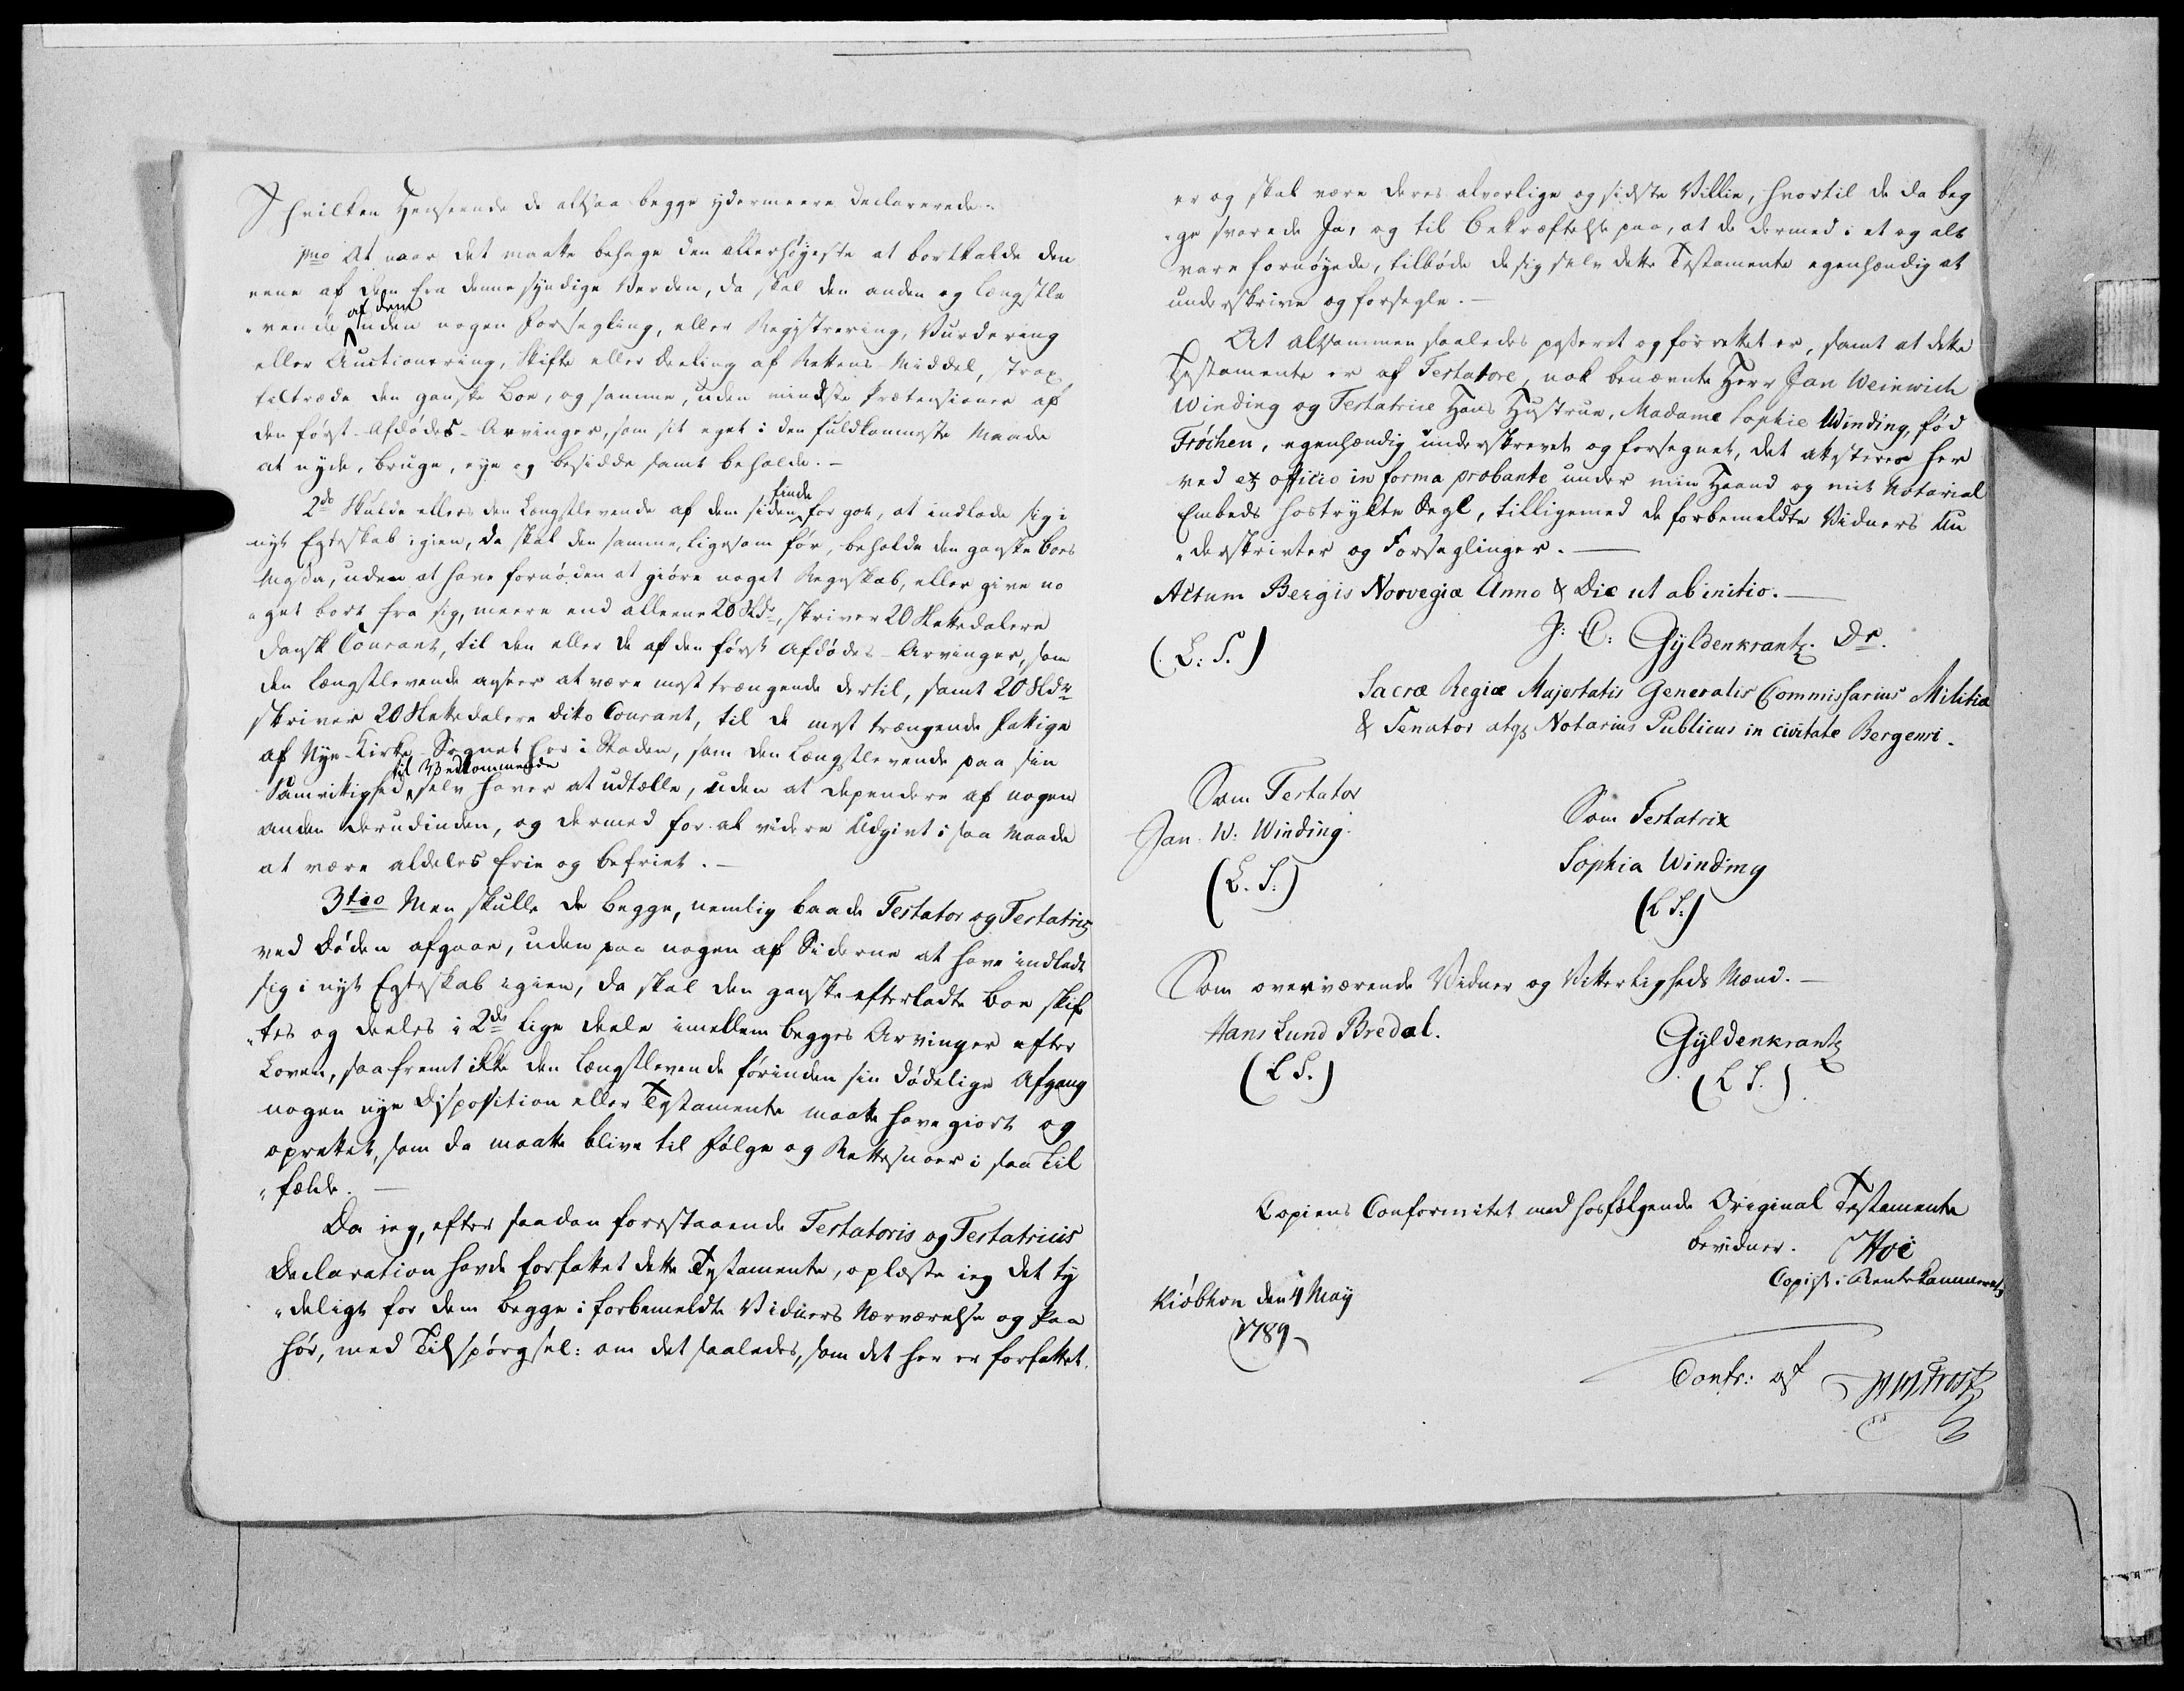 I hvilken Henseende de altsaa begge ydermeere declarerede.
1mo At naar det maatte behage den allerhøyeste at bortkalde den
eene af dem fra denne syndige Verden, da skal den anden og længstle
„vende af dem uden nogen Forsegling, eller Registrering, Vurdering
eller Auctionering, Skifte eller Deeling af Rettens Middel, strax
tiltræde den gandske Boe, og samme, uden mindste Prætensioner af
den først-Afdødes-Arvinger, som sit eget i den fuldkomneste Maade
at nyde, bruge, eye og besidde samt beholde.-
2do Skulde ellers den Længstlevende af dem siden finde for got, at indlade sig i
nyt Egteskab igien, da skal den samme, ligesom før, beholde den gandske Boes
Masda, uden at have fornøden at giøre noget Regnskab, eller give no
„get bort fra sig, meere end alleene 20 Rdr, skriver 20 Rettedalere
dansk Courant, til den eller de af den først Afdødes-Arvinger, som
den længstlevende agter at være mest trængende dertil, samt 20 Rdr
skriver 20 Rettedalere dito Courant, til de mest trængende Fattige
af Nye-Kirke-Sognet her i Staden, som den Længstlevende paa sin
Samvittighed til Vedkommende selv haver at udtælle, uden at dependere af nogen
anden derudinden, og dermed for al videre Udgivt i saa Maade
at være aldeles frie og befriet.-
3tio Men skulle de begge, nemlig baade Testator og Testatrix
ved Døden afgaae, uden paa nogen af Siderne at have indladt
sig i nyt Egteskab igien, da skal den gandske efterladte Boe skif
„tes og deeles i 2de lige Deele imellem begges Arvinger efter
Loven, saafremt ikke den længstlevende førinden sin dødelige Afgang
nogen nye Disposition eller Testamente maatte have giort og
oprettet, som da maatte blive til følge og Rettesnoer i saa Til
„fælde.-
Da ieg, efter saadan forestaaende Testatoris og Testatricis
Declaration havde forfattet dette Testamente, oplæste ieg det ty
„deligt for dem begge i forbemeldte Vidners Nærværelse og Paa
hør, med Tilspørgsel: om det saaledes, som det her er forfattet.
er og skal være deres alvorlige og sidste Villie, hvortil de da beg
„ge svarede Ja, og til Bekræftelse paa, at de dermed i et og alt
vare fornøyede, tilbøde de sig selv dette Testamente egenhændig at
underskrive og forsegle.-
At altsammen saaledes passeret og forrettet er, samt at dette
Testamente er af Testatore, nok benævnte Herr Jan Weinwich
Winding og Testatrice Hans Hustrue, Madame Sophie Winding, fød
Frøchen, egenhændig underskrevet og forsegnet, det attesteres her
ved ex officio in forma probante under min Haand og mit Notarial
Embeds hostrykte Segl, tilligemed de forbemeldte Vidners Un
„derskrivter og Forseglinger.-
Actum Bergis Norvegiæ Anno & Die ut ab initio.-
(L: S.)
J: C: Gyldenkrantz. Dr.
Sacræ Regiæ Majestatis Generalis Commissarius Militiæ
& Senator atqs Notarius Publicus in civitate Bergensi.
Som Testator
Jan W: Winding.
(L. S:)
Som Testatrix
Sophia Winding
(L S:)
Som overværende Vidner og Vitterligheds Mænd.-
Hans Lund Bredal.
(L S.)
Gyldenkrantz
(L S.)
Copiens Conformitet med hosfølgende Original Testamente
bevidner. Hoë
Copist i Rentekammeret
Kiøbhvn den 4 May
1789-
Confr: af